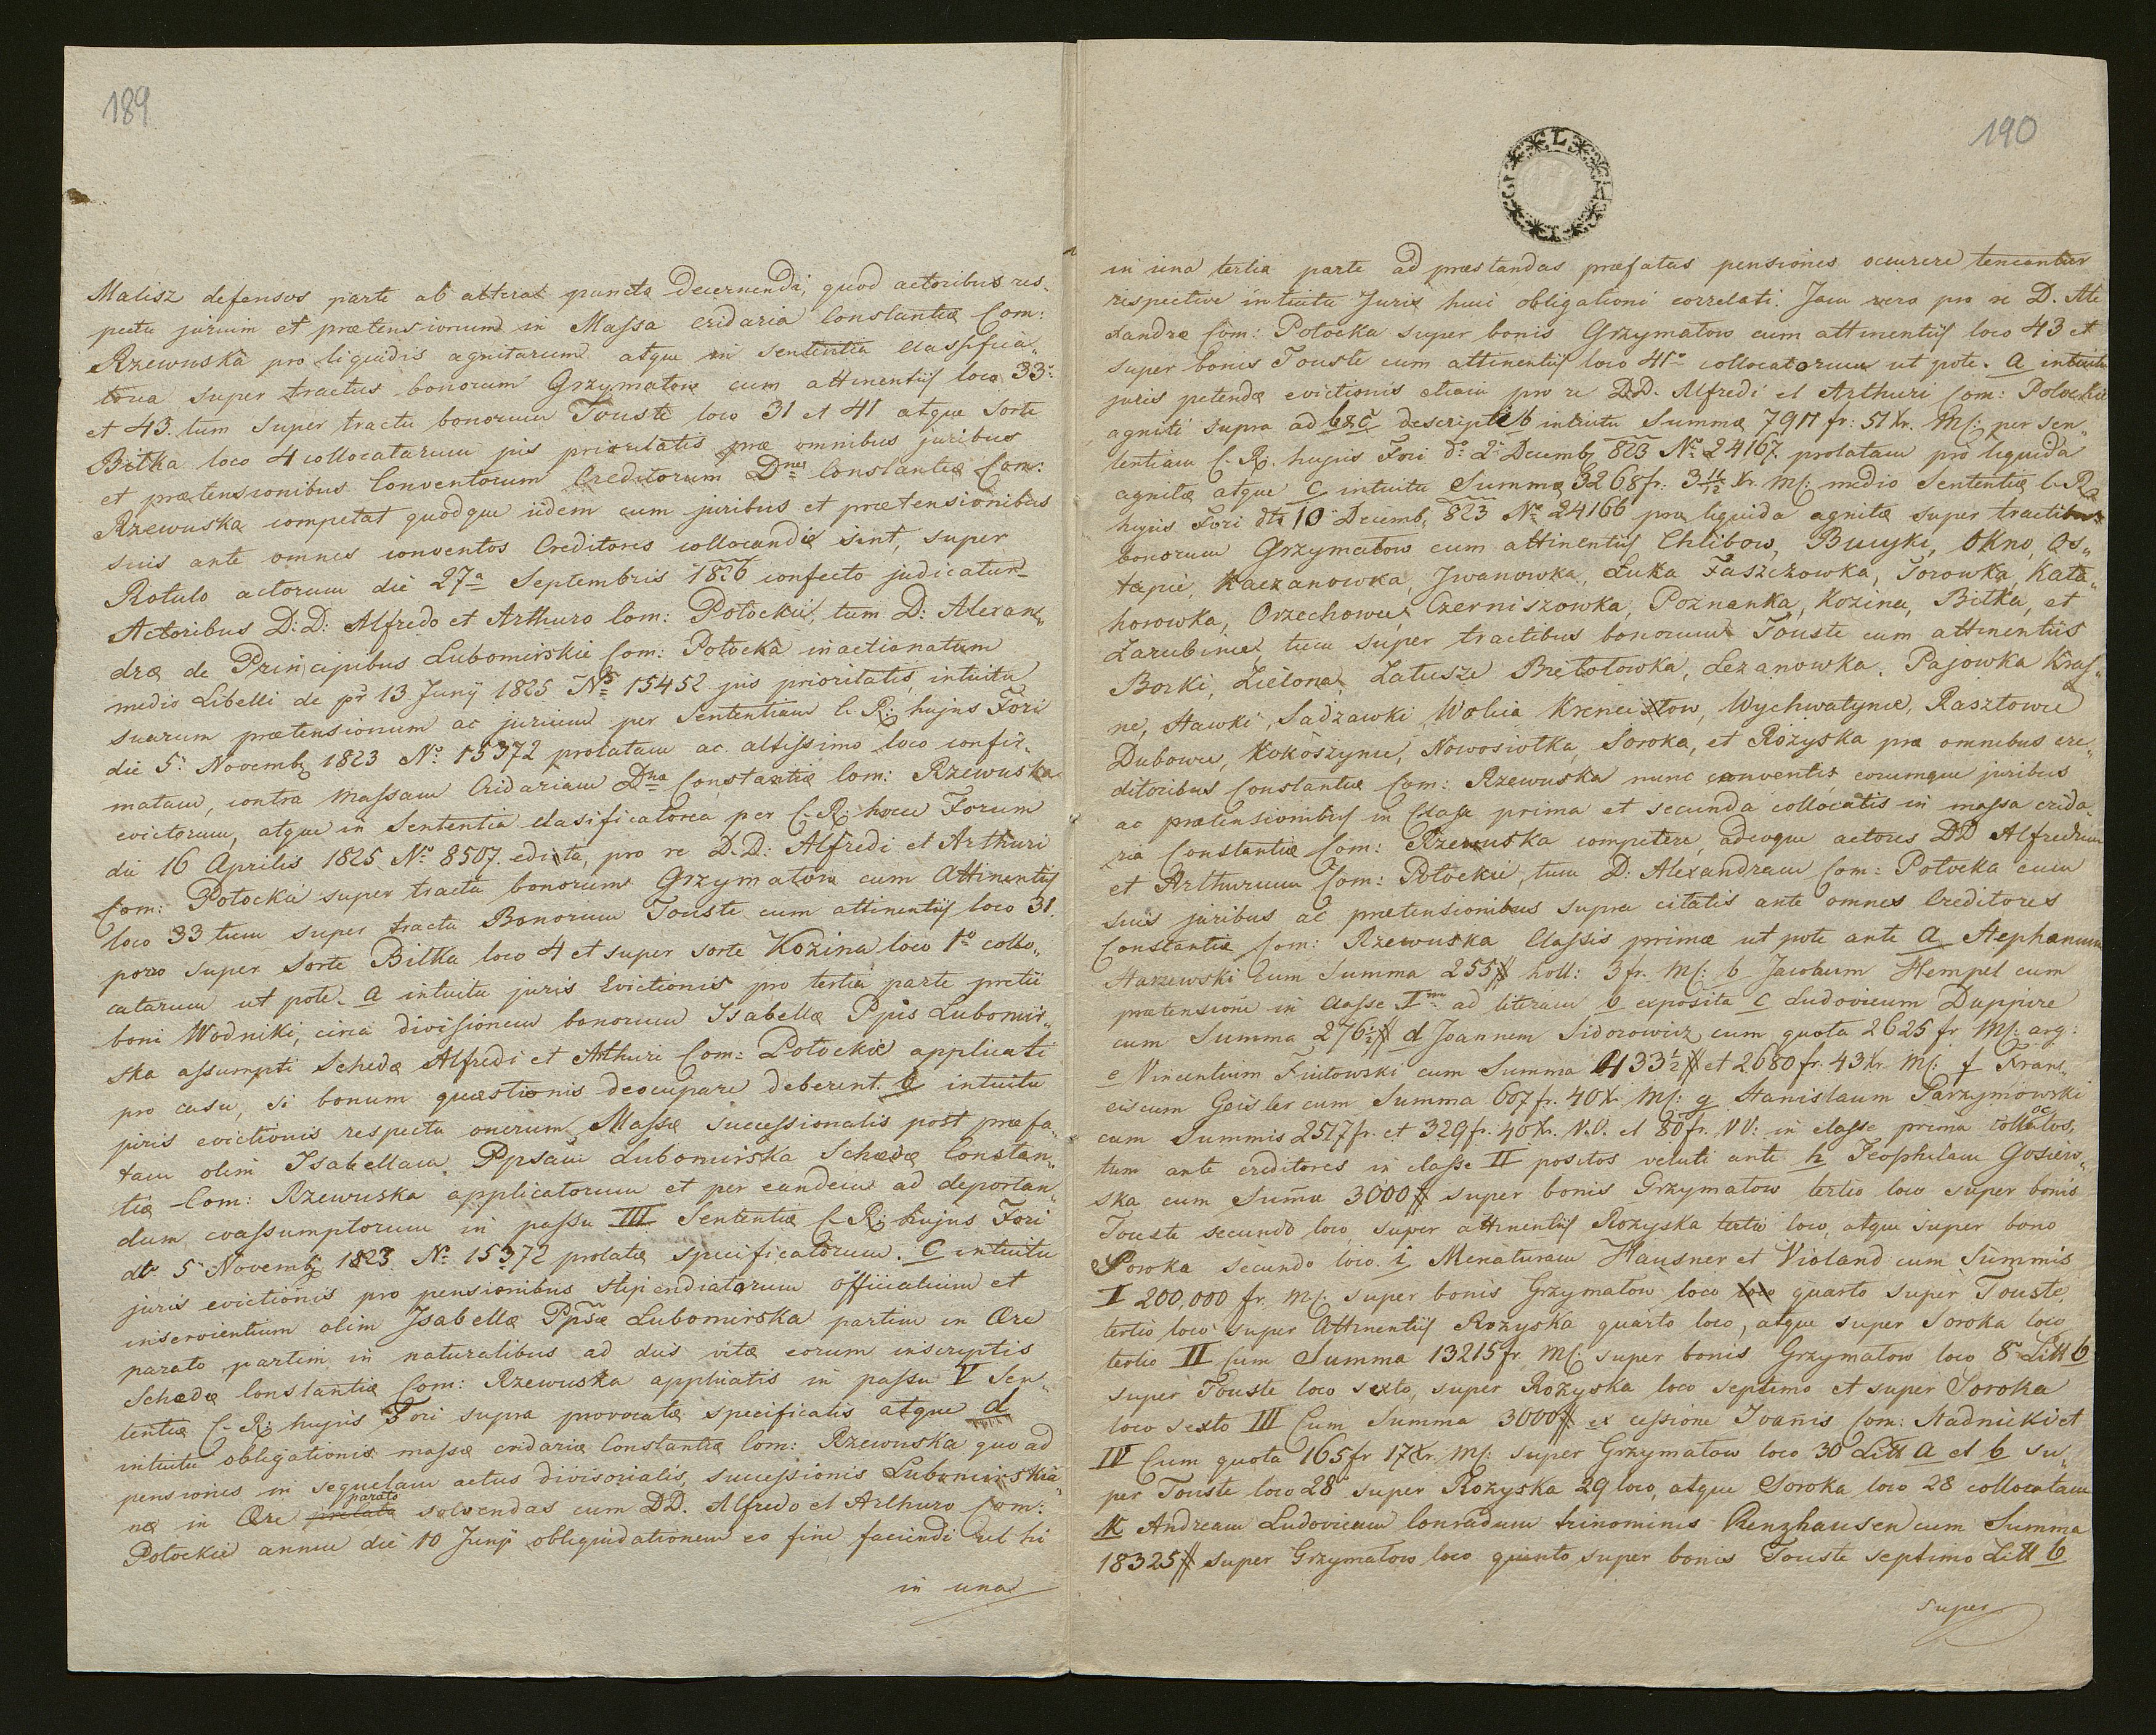 189
Malisz defensos parte ab altera puncto decernendi, quod actoribus res-
pectu jurium et prætensionum in Massa cridaria Constantiæ Com:
Rzewuska pro liquidis agnitarum atque in sententia classifica-
toria super tractus bonorum Grzymałow cum attinentiis loco 33°
et 43. tum super tractu bonorum Touste loco 31 et 41 atque Sorte
Bitka loco 4 collocatarum jus prioritatis præ omnibus juribus
et prætensionibus Conventorum Creditorum Dnæ Constantiæ Com:
Rzewuska competat quodque iidem cum juribus et prætensionibus
suis ante omnes conventos Creditores collocandi sint, super
Rotulo actorum die 27a Septembris 1826 confecto judicatur
Actoribus D: D: Alfredo et Arthuro Com: Potockie, tum D: Alexan-
dræ de Principibus Lubomirskie Com: Potocka inactionatum
medio Libelli de pr 13 Junÿ 1825 No 15452 jus prioritatis, intuitu
suarum prætensionum ac jurium per Sententiam C. R. hujus Fori
die 5 Novemb 1823 No 15372 prolatam ac altissimo loco confir-
matam, contra Massam Cridariam Dnæ Constantiæ Com: Rzewuska
evictorum, atque in Sententia clasificatorea per C. R. hocce Forum
die 16 Aprilis 1825 No 8507 edicta, pro re D. D: Alfredi et Arthuri
Com: Potocka super tractu bonorum Grzymałow cum Attinentiis
loco 33 tum super tractu Bonorum Touste cum attinentiis loco 31.
porro super Sorte Bitka loco 4 et super sorte Kozina loco 1o collo-
catarum ut pote. a intuitu juris Evictionis pro tertia parte pretii
boni Wodniki, circa divisionem bonorum Isabellæ Ppis Lubomir-
ska assumpti Schedæ Alfredi et Athuri Com: Potockie applicati
pro casu, si bonum quæstionis deocupare deberent. b intuitu
juris evictionis respectu onerum Massæ successionalis post præfa-
tam olim Isabellam Ppsam Lubomirska Schedæ Constan-
tiæ Com: Rzewuska applicatorum et per eandem ad deportan-
dum coassumptorum in passu III Sententiæ C. R. hujus Fori
dto 5 Novemb 1823 No 15372 prolatæ specificatorum. C intuitu
juris evictionis pro pensionibus stipendiatorum officialium et
inservientium olim Isabellæ Ppsæ Lubomirska partim in Ære
parato partim in naturalibus ad dies vitæ eorum inscriptis
Schedæ Constantiæ Com: Rzewuska applicatis in passu V Sen-
tentiæ C. R. hujus Fori supra provocatæ specificatis atque d
intuitu obligationis massæ cridariæ Constantiæ Com: Rzewuska quoad
pensiones in sequelam actus divisorialis successionis Lubomirskia-
næ in Ære prelata parato solvendas cum D D. Alfredo et Arthuro Com:
Potockie annuæ die 10 Junÿ obliquidationem eo fine faciendi vel hi
in una
190
in una tertia parte ad præstandas præfatas pensiones occurere teneantur
respective intuitu Juris huic obligationi correlati. Jam vero pro re D. Ale
xandræ Com: Potocka super bonis Grzymałow cum attinentiis loco 43 et
super bonis Touste cum attinentiis loco 41o collocatorum ut pote. a intuitu
juris petendæ evictionis etiam pro re DD. Alfredi et Arthuri Com: Potockie
agniti supra ad b & c descripti b intuitu Summæ 7911 fr: 51 Xr. M: per Sen-
tentiam C. R. hujus Fori do 2 Decemb 823 No 24167 prolatam pro liquida
agnitæ atque C intuitu Summæ 3268 fr: 3 Xr. M: medio Sententiæ C. R.
hujus Fori dto 10 Decemb. 823 No 24166 pro liquida agnitæ super tractibus
bonorum Grzymałow cum attinentiis Chlibow, Bucyki, Okno, Os-
tapie, Kaczanowka, Iwanowka, Łuka Faszczowka, Torowka, Kała-
horowka, Orzechowce, Czerniszowka, Poznanka, Kozina, Bitka, et
Zarubince tum super tractibus bonorum Touste cum attinentiis
Borki, Zielona, Zatusze Brełotowka, Lezanowka, Pajowka Kras-
ne, Stawki, Sadzawki Wolica Krzneistow, Wychwatynce, Rasztowce
Dubowce, Kokoszynce, Nowosiołka, Soroka, et Rożyska præ omnibus cre-
ditoribus Constantiæ Com: Rzewuska nunc conventis, eorumque juribus
ac prætensionibus in Classe prima et secunda collocatis in massa crida-
ria Constantiæ Com: Rzewuska competere, adeoque actores DD Alfredum
et Arthurum Com: Potockie, tum D: Alexandram Com: Potocka cum
suis juribus ac prætensionibus supra citatis ante omnes Creditores
Constantiæ Com: Rzewuska Classis primæ ut pote ante a Stephanum
Starzewski cum Summa 255 # holl: 3 fr. M: b Jacobum Hempel cum
prætensione in classe Ima ad literam b exposita c Ludovicum Duppire
cum Summa 276½ # d Joannem Sidorowicz cum quota 2625 fr M: arg:
e Vincentium Fiutowski cum Summa 433½ # et 2680 fr. 43 Xr M: f Fran-
ciscum Geisler cum Summa 607 fr. 40 X M: g Stanislaum Parzymowski
cum Summis 2517 fr. et 329 fr. 40 Xr. V. V. et 80 fr. V V: in classe prima collocatos,
tum ante creditores in classe II positos veluti ante h Teophilam Gosiew-
ska cum Suma 3000 # super bonis Grzymałow tertio loco super bonis
Touste secundo loco, super attinentiis Rożyska tertio loco, atque super bono
Soroka secundo loco. i Menaturam Hausner et Violand cum Summis
I 200,000 fr. M: super bonis Grzymałow loco loco quarto super Touste,
tertio loco super Attinentiis Rożyska quarto loco, atque super Soroka loco
tertio II Cum Summa 13215 fr M: super bonis Grzymałow loco 8o Litt b
super Touste loco sexto, super Rożyska loco septimo et super Soroka
loco sexto III Cum Summa 3000 # ex cessione Ivanis Com: Stadnicki et
IV Cum quota 165 fr 17 Xr M: super Grzymałow loco 30 Litt a et b su-
per Touste loco 28 super Rożyska 29 loco, atque Soroka loco 28 collocatam
K Andream Ludovicum Conradum trinominis Renzhausen cum Summa
18325 # super Grzymałow loco quinto super bonis Touste septimo Litt b
super